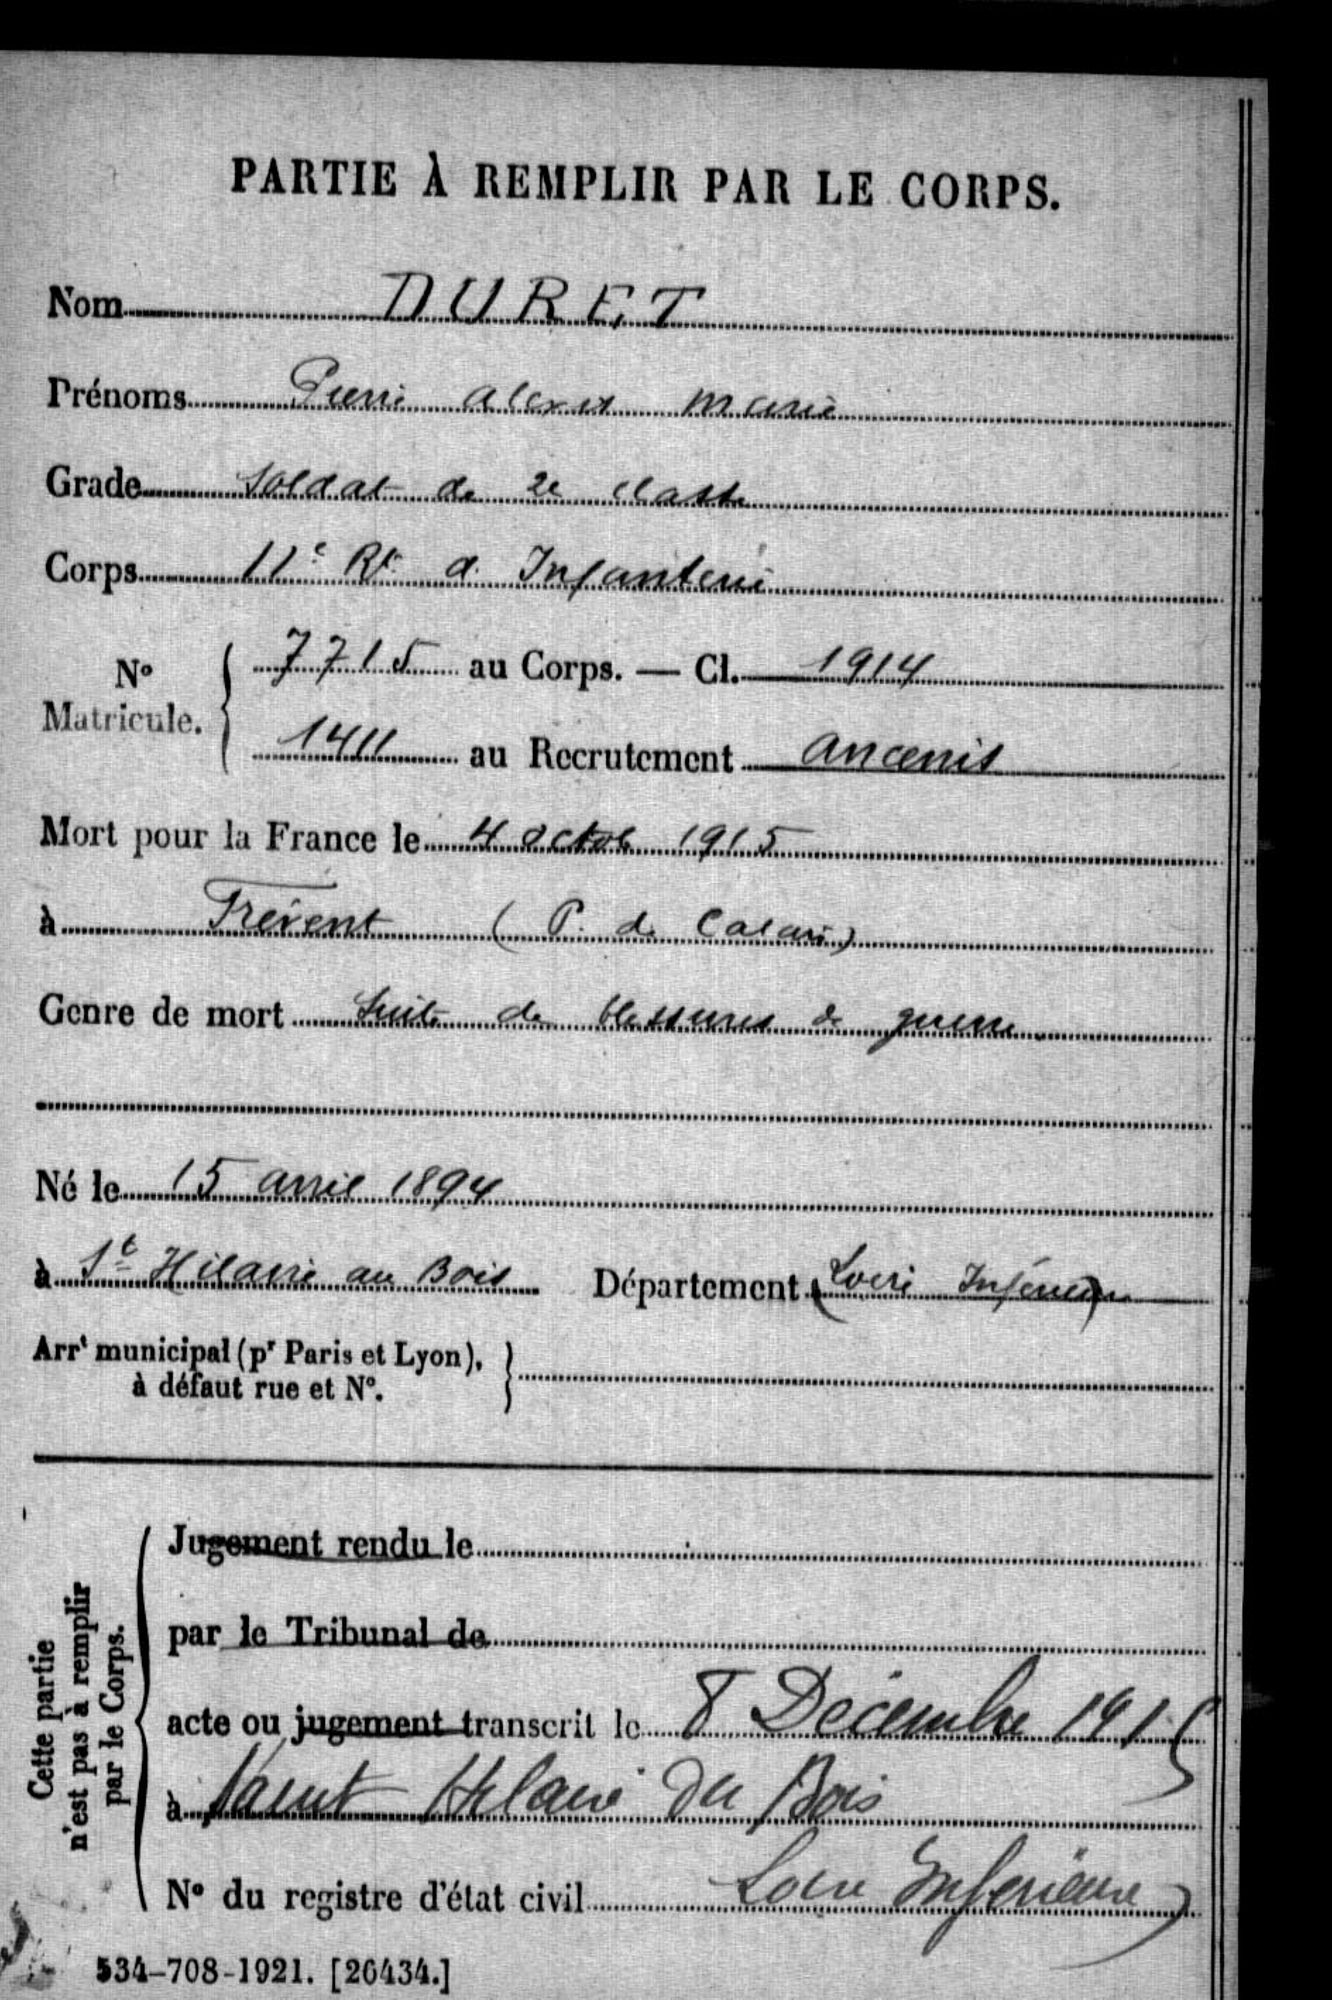 PARTIE À REMPLIR PAR LE CORPS.
Nom DURET
Prénoms Pierre Alexis Marie
Grade Soldat de 2e classe
Corps 11e Rt d'Infanterie
No Matricule. { 7715 au Corps. — Cl. 1914
1411 au Recrutement Ancenis
Mort pour la France le 4 octob 1915
à Frévent (P. de Calais)
Genre de mort Suite de blessures de guerre
Né le 15 avril 1894
à St Hilaire au Bois Département (Loire Inférieure)
Arrt municipal (pr Paris et Lyon), }
à défaut rue et No.
Cette partie
n'est pas à remplir
par le Corps.
Jugement rendu le
par le Tribunal de
acte ou jugement transcrit le 8 Décembre 1915
à Saint Hilaire du Bois
No du registre d'état civil Loire Inférieure)
534-708-1921. [26434.]